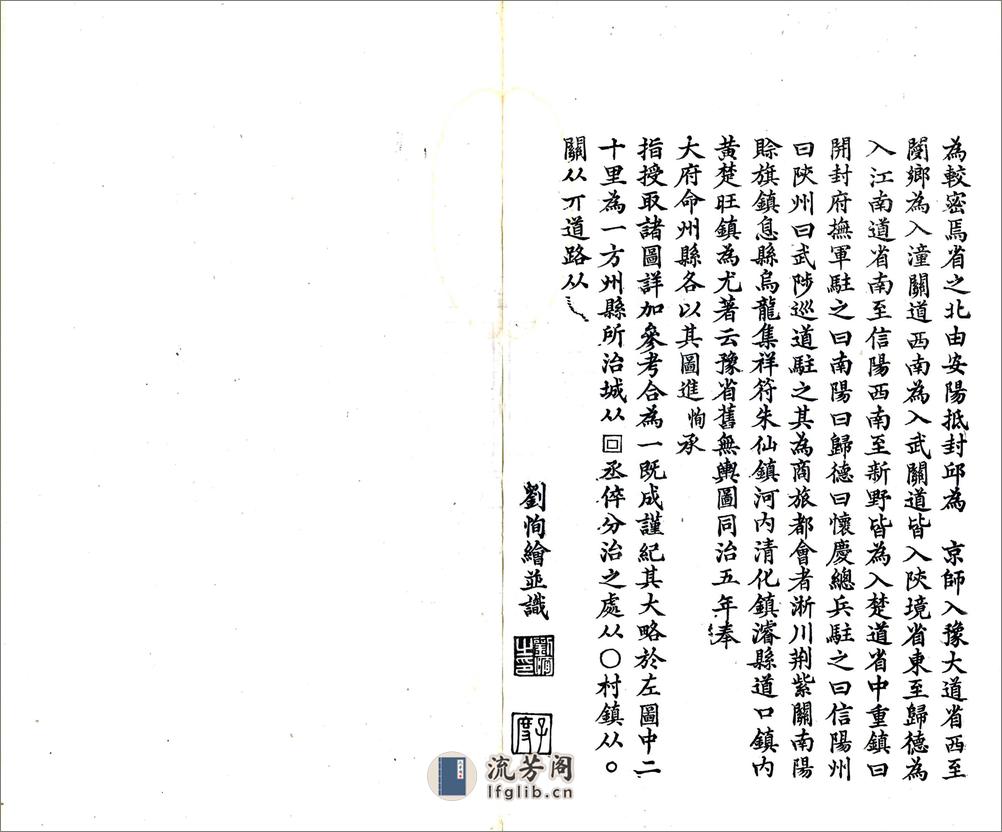 為較密焉省之北由安陽抵封邱為　京師入豫大道省西至
閿鄉為入潼關道西南為入武關道皆入陝境省東至歸德為
入江南道省南至信陽西南至新野皆為入楚道省中重鎮曰
開封府撫軍駐之曰南陽曰歸德曰懷慶總兵駐之曰信陽州
曰陝州曰武陟巡道駐之其為商旅都會者淅川荆紫關南陽
賒旗鎮息縣烏龍集祥符朱仙鎮河內清化鎮濬縣道口鎮內
黃楚旺鎮為尤著云豫省舊無輿圖同治五年奉
大府命州縣各以其圖進恂承
指授取諸圖詳加參考合為一既成謹紀其大略於左圖中二
十里為一方州縣所治城从回丞倅分治之處从〇村鎮从〇
關从丌道路从
劉恂繪並識
劉恂之印
子度
流芳阁
lfglib.cn